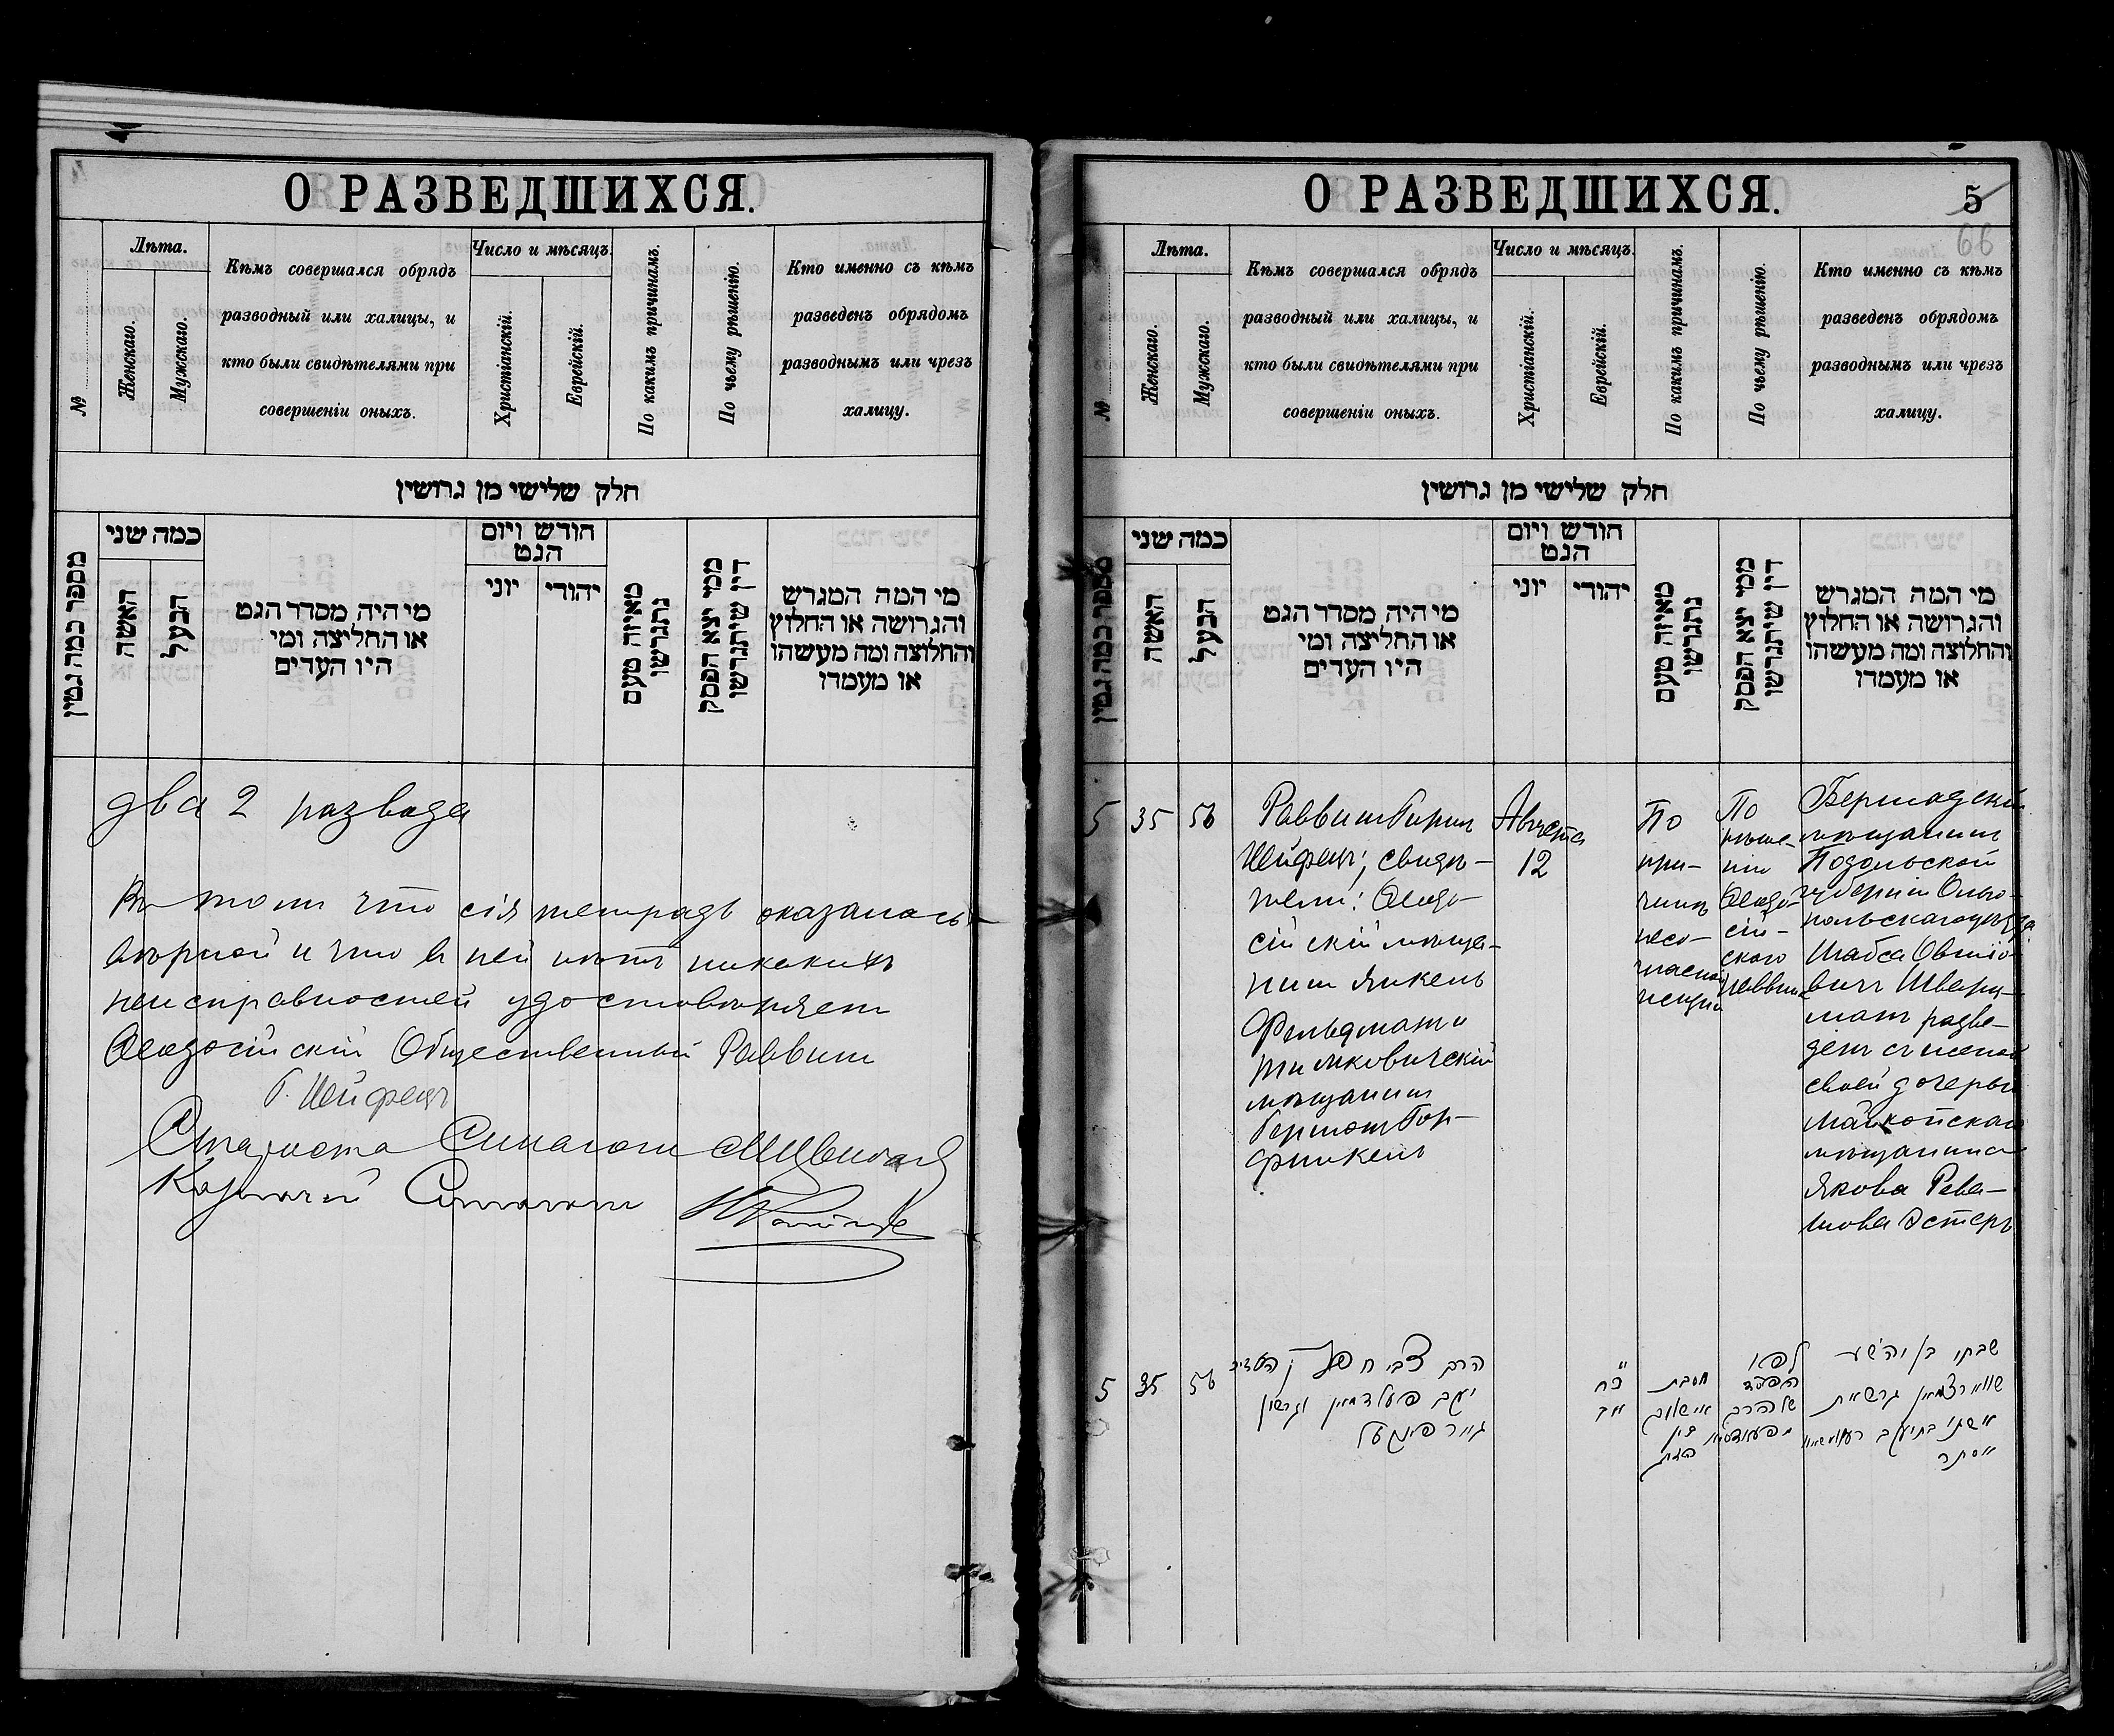 О РАЗВЕДШИХСЯ.
№
Лѣта.
Женскаго.
Мужскаго.
Кѣмъ совершался обрядъ
разводный или халицы, и
кто были свидѣтелями при
совершеніи оныхъ.
Число и мѣсяцъ.
Христіанскій.
Еврейскій.
По какимъ причинамъ.
По чьему рѣшенію.
Кто именно съ кѣмъ
разведенъ обрядомъ
разводнымъ или чрезъ
халицу.
חלק שלישי מן גרושין
מספר כמה גטין
כמה שני
האשה
הבעל
מי היה מסדר הגט
או החליצה ומי
היו העדים
חודש ויום
הגט
יוני
יהודי
מאיזה טעם
נתגרשו
ממי יצא הפסק
דין שיתגרשו
מי המה המגרש
והגרושה או החלוץ
והחלוצה ומה מעשהו
או מעמדו
два 2 развода
Въ томъ что сія тетрадь оказалась
вѣрной и что в ней нѣтъ никакихъ
неисправностей удостовѣряетъ
Ѳеодосійскій Общественный Раввинъ
Б. Шейфецъ
Староста Синагоги
Казначей Синагоги
О РАЗВЕДШИХСЯ.
5
66
№
Лѣта.
Женскаго.
Мужскаго.
Кѣмъ совершался обрядъ
разводный или халицы, и
кто были свидѣтелями при
совершеніи оныхъ.
Число и мѣсяцъ.
Христіанскій.
Еврейскій.
По какимъ причинамъ.
По чьему рѣшенію.
Кто именно съ кѣмъ
разведенъ обрядомъ
разводнымъ или чрезъ
халицу.
חלק שלישי מן גרושין
מספר כמה גטין
כמה שני
האשה
הבעל
מי היה מסדר הגט
או החליצה ומי
היו העדים
חודש ויום
הגט
יוני
יהודי
מאיזה טעם
נתגרשו
ממי יצא הפסק
דין שיתגרשו
מי המה המגרש
והגרושה או החלוץ
והחלוצה ומה מעשהו
או מעמדו
5
35
56
Раввинъ
Шейфецъ; свидѣ-
тели: Ѳеодо-
сійскій мѣща-
нинъ Янкель
Фельдманъ и
мѣщанинъ
Гершонъ Гор-
финкель
Августа
12
По
при-
чинѣ
несо-
гласной
жизни
По
рѣше-
нію
Ѳеодо-
сій-
скаго
раввина
Бершадскій
мѣщанинъ
Подольской
губерніи Ольго-
польскаго уѣзда
Шабса
Шварц-
манъ разве-
денъ съ женой
своей дочерью
Майкопскаго
мѣщанина
Якова
Эстеръ
5
35
56
הרב צבי
יעקב פעלדמאן וגרשון
גורפינקעל
כח
אב
מסבת
לפי
של הרב
שבתי בן יהושע
שווארצמאן גרש את
אשתו בת יעקב
אסתר